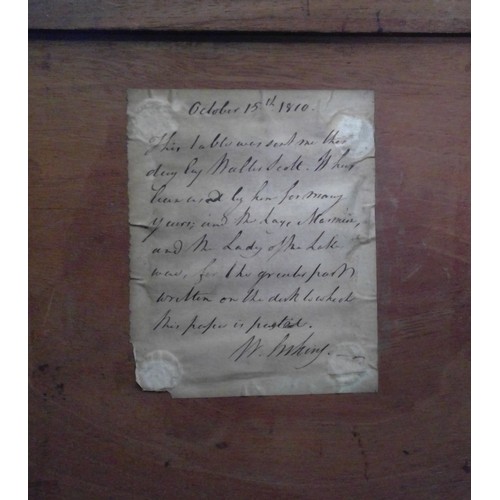 October 15th 1810.
This table was sent me this
day by Walter Scott. It has
been used by him for many
years; and the Lay, Marmion,
and the Lady of the Lake
were, for the greatest part
written on the desk to which
this paper is pasted.
W. Erskine